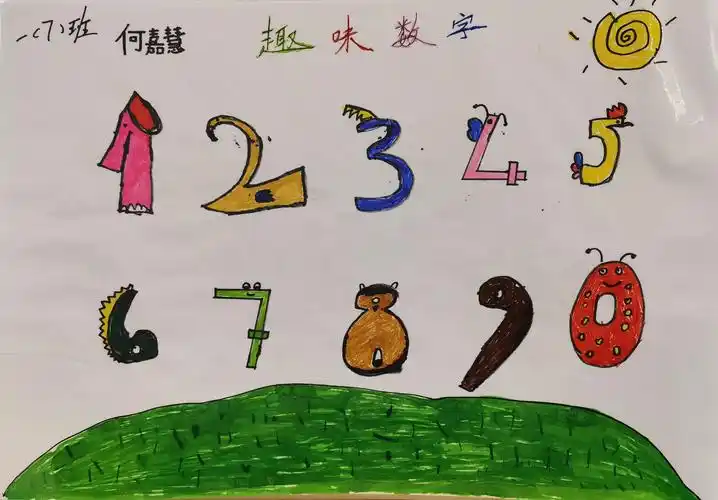 一(7)班 何嘉慧 趣味数字
1 2 3 4 5
6 7 8 9 0